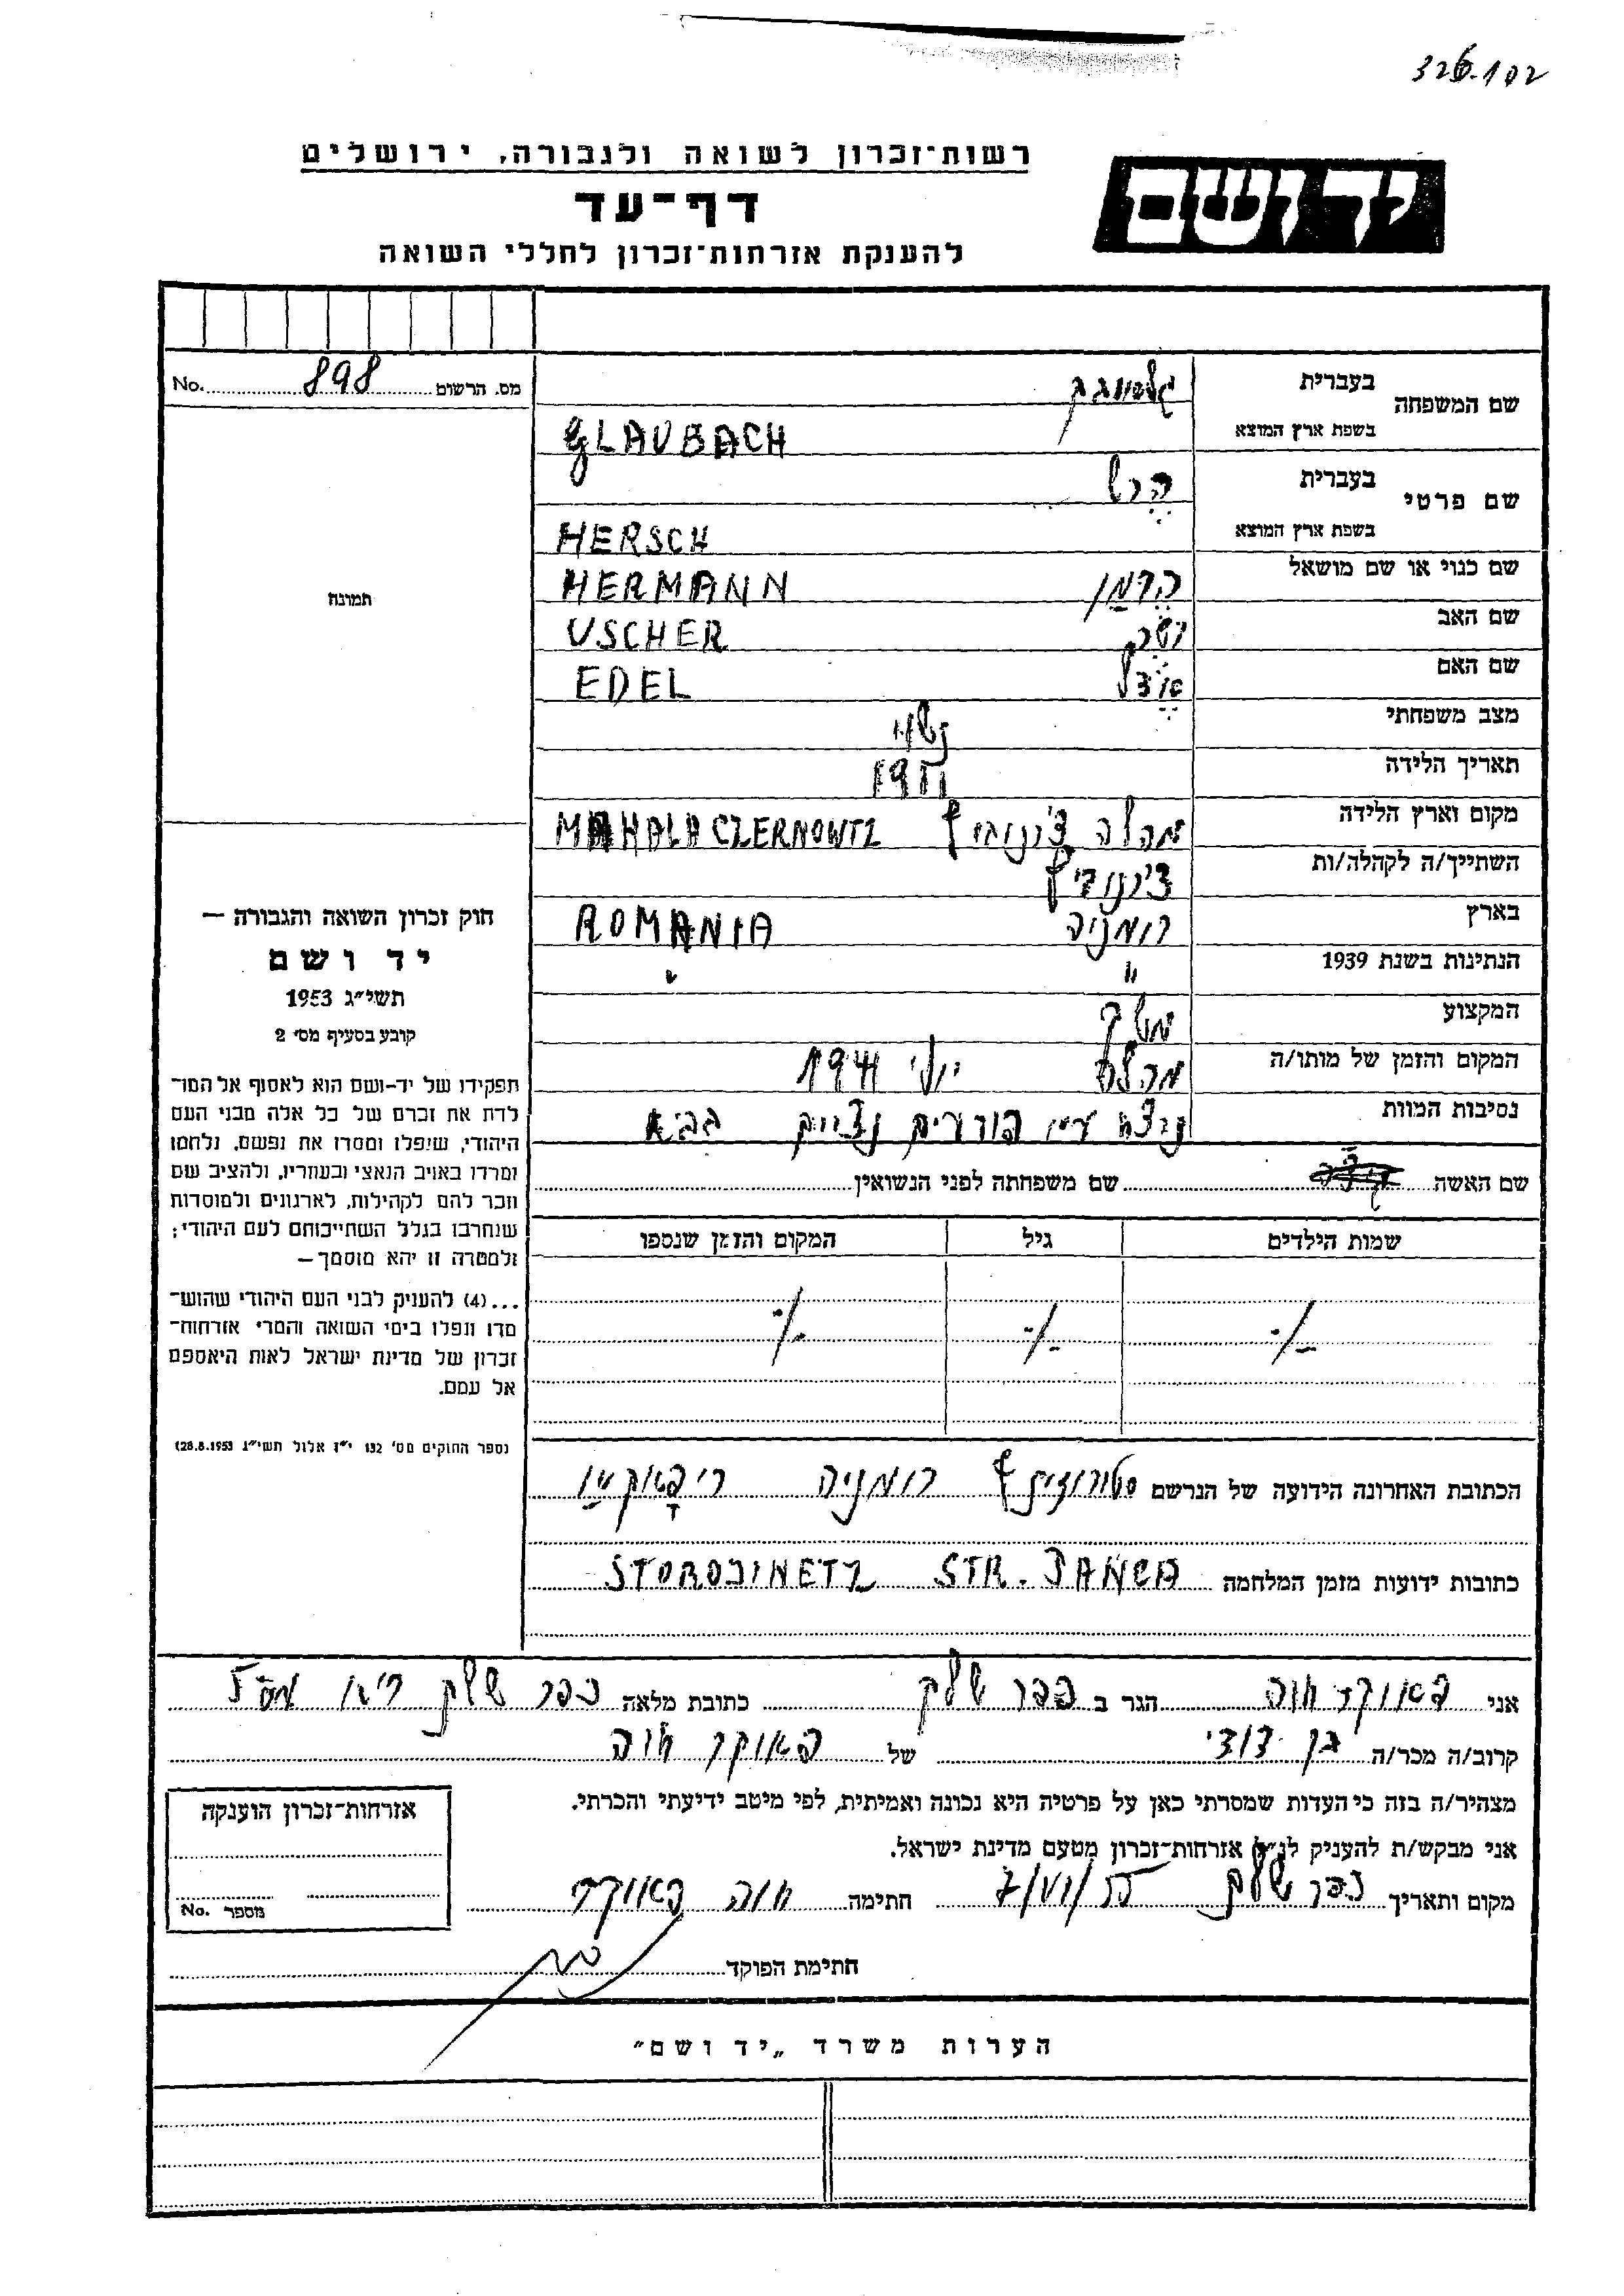 326.102
רשות־זכרון לשואה ולגבורה, ירושלים
יד ושם
דף־עד
להענקת אזרחות־זכרון לחללי השואה
מס. הרשום 898 No.
שם המשפחה בעברית
בשפת ארץ המוצא GLAUBACH
שם פרטי בעברית הרש
בשפת ארץ המוצא HERSCH
שם כנוי או שם מושאל הרמן HERMANN
שם האב USCHER
שם האם EDEL
מצב משפחתי נשוי
תאריך הלידה 1911
מקום וארץ הלידה מהלה MAHALA CZERNOWTZ
השתייך/ה לקהלה/ות
בארץ רומניה ROMANIA
הנתינות בשנת 1939 " "
המקצוע
המקום והזמן של מותו/ה מהלה יולי 1941
נסיבות המוות נרצח ע״י
שם האשה שם משפחתה לפני הנשואין
שמות הילדים גיל המקום והזמן שנספו
-/- -/- -/-
תמונה
חוק זכרון השואה והגבורה —
יד ושם
תשי״ג 1953
קובע בסעיף מס׳ 2
תפקידו של יד-ושם הוא לאסוף אל המו־
לדת את זכרם של כל אלה מבני העם
היהודי, שנפלו ומסרו את נפשם, נלחמו
ומרדו באויב הנאצי ובעוזריו, ולהציב שם
וזכר להם לקהילות, לארגונים ולמוסדות
שנחרבו בגלל השתייכותם לעם היהודי;
ולמטרה זו יהא מוסמך—
...(4) להעניק לבני העם היהודי שהוש־
מדו ונפלו בימי השואה והמרי אזרחות־
זכרון של מדינת ישראל לאות היאספם
אל עמם.
(ספר החוקים מס׳ 132 י״ז אלול תשי״ג 28.8.1953)
הכתובת האחרונה הידועה של הנרשם רומניה
כתובות ידועות מזמן המלחמה STOROJINETZ STR. JANCA
אני חוה הגר ב כפר שלם כתובת מלאה כפר שלם
קרוב/ה מכר/ה בן דודי של חוה
מצהיר/ה בזה כי העדות שמסרתי כאן על פרטיה היא נכונה ואמיתית, לפי מיטב ידיעתי והכרתי.
אני מבקש/ת להעניק לנ״ל אזרחות־זכרון מטעם מדינת ישראל.
מקום ותאריך כפר שלם חתימה חוה
חתימת הפוקד
אזרחות־זכרון הוענקה
מספר No.
הערות משרד „יד ושם"